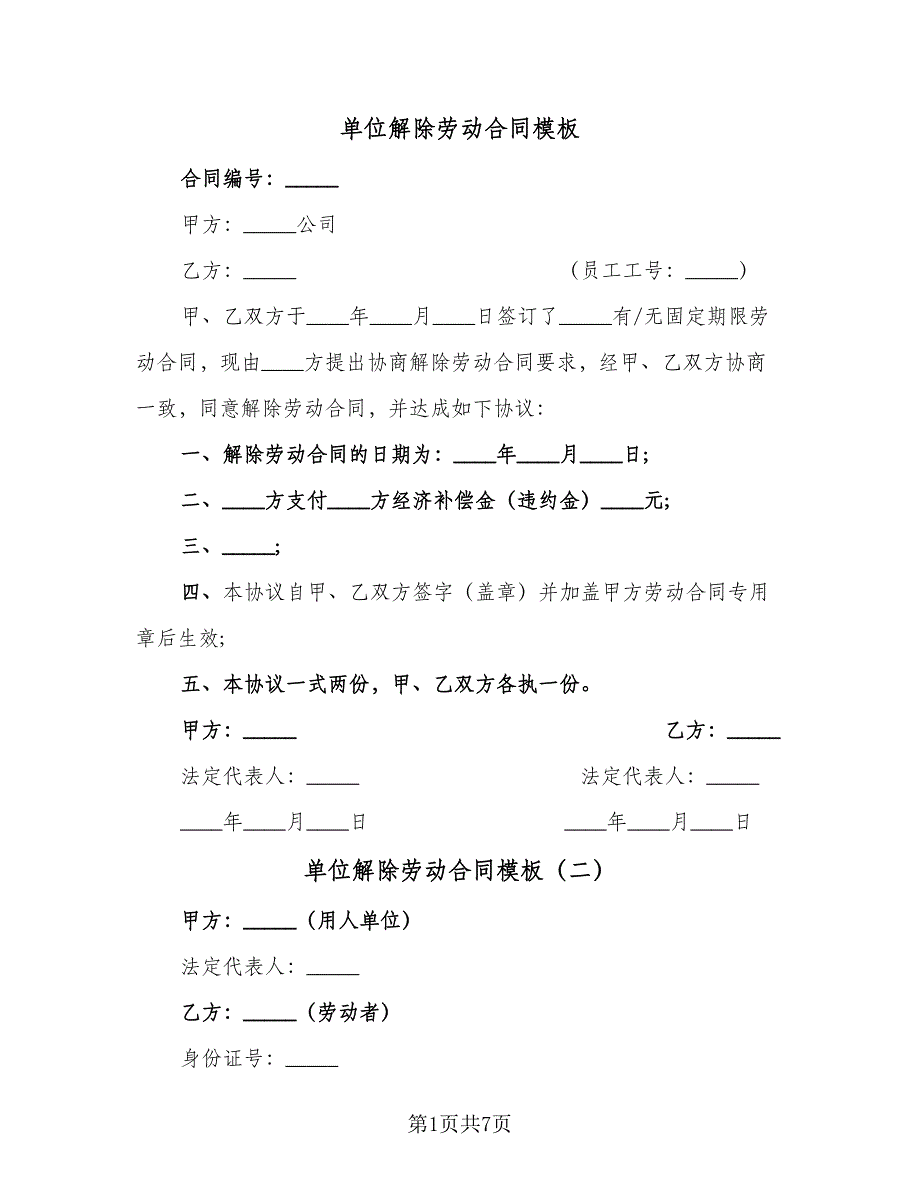 单位解除劳动合同模板
合同编号：_____
甲方：_____公司
乙方：_____ （员工工号：_____）
甲、乙双方于____年____月____日签订了_____有/无固定期限劳
动合同，现由____方提出协商解除劳动合同要求，经甲、乙双方协商
一致，同意解除劳动合同，并达成如下协议：
一、解除劳动合同的日期为：____年____月____日；
二、____方支付____方经济补偿金（违约金）____元；
三、_____；
四、本协议自甲、乙双方签字（盖章）并加盖甲方劳动合同专用
章后生效；
五、本协议一式两份，甲、乙双方各执一份。
甲方：_____ 乙方：_____
法定代表人：_____ 法定代表人：_____
____年____月____日 ____年____月____日
单位解除劳动合同模板（二）
甲方：_____（用人单位）
法定代表人：_____
乙方：_____（劳动者）
身份证号：_____
第1页共7页